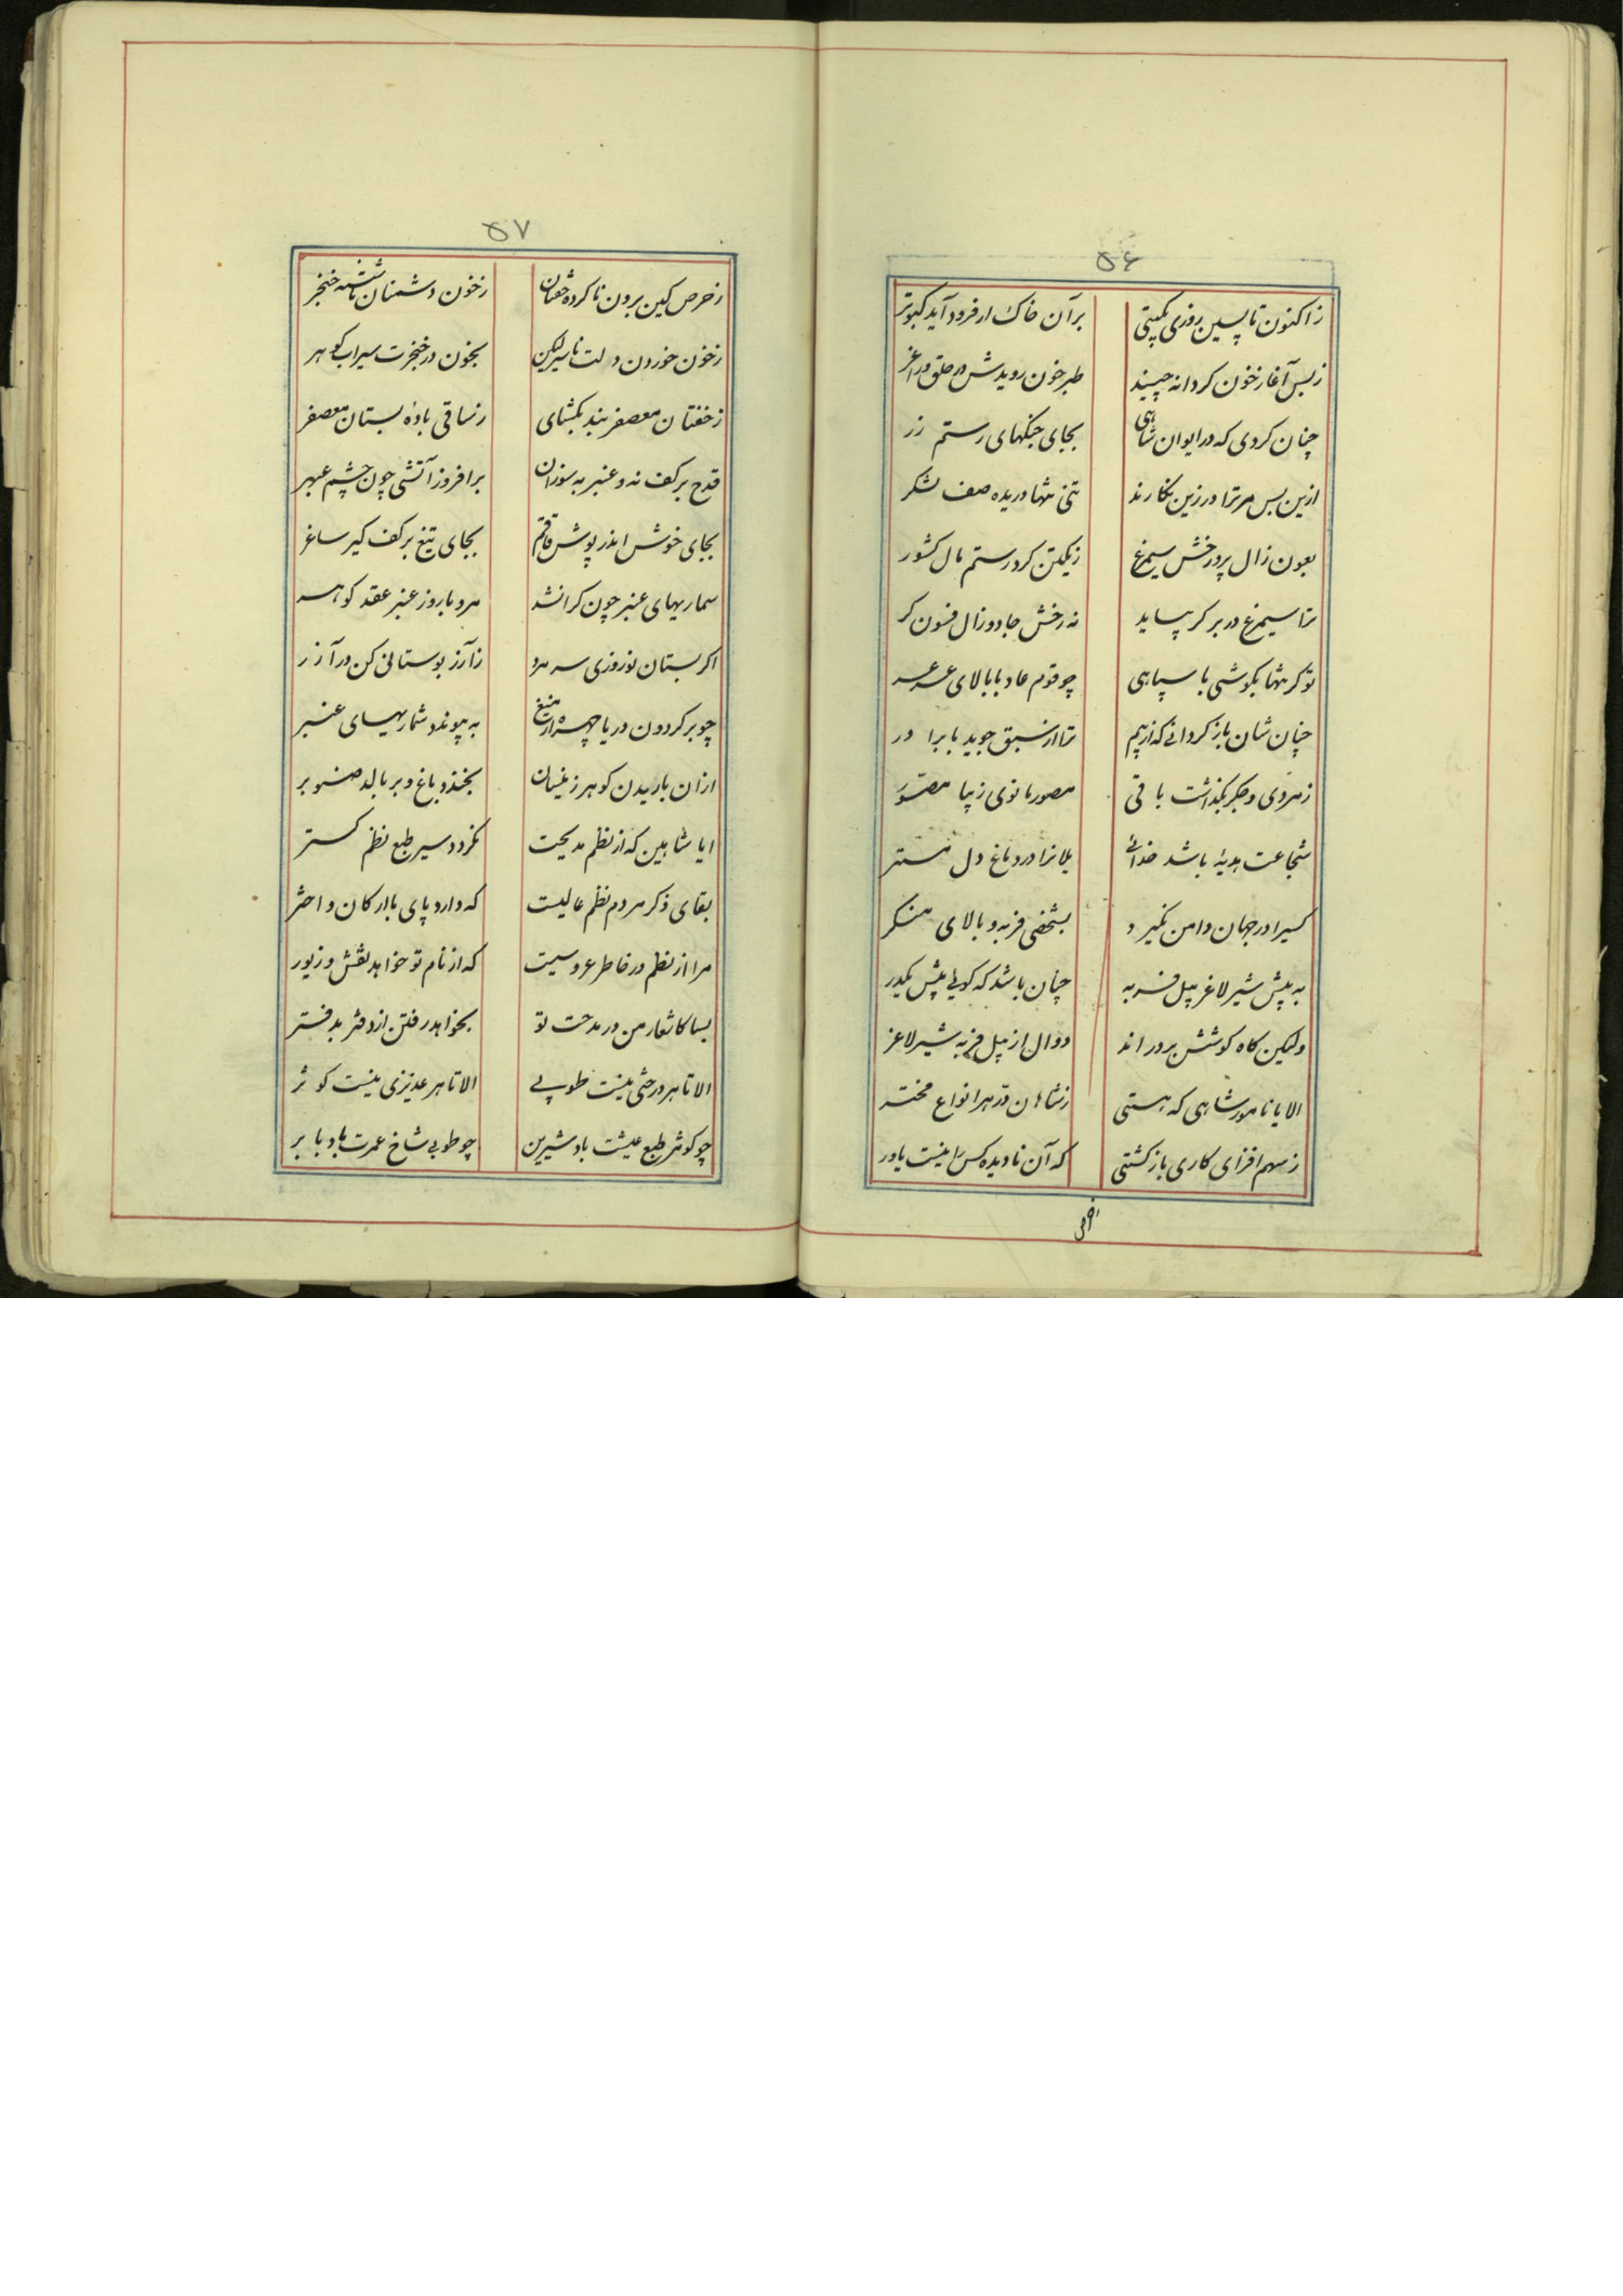 ۵۶
زاکنون تا پسین روزی بکیتی برآن خاک ار فرود آید کبوتر
زبس آغار خون کر دانه چیند طبر خون رویدش در حلق و زاغر
چنان کردی که در ایوان شاهی بجای جنکهای رستم زر
ازین پس مر ترا در زین نکارند تنی تنها دریده صف لشکر
بعون زال پر و رخش سیمرغ زیکتن کرد رستم مال کشور
ترا سیمرغ در بر کر بساید نه رخش جادو و زال فسون کر
تو کر تنها بکوشی با سپاهی چو قوم عاد با بالای عرعر
چنان شان باز کردانی که از بیم ترا از سبق جوید با برادر
زمردی و جکر بکذاشت باقی مصور مانوی زیبا مصور
شجاعت هدیهٔ باشد خدائی یلانرا در دماغ دل مستر
کسیرا در جهان دامن نکیرد بشخص فربه و بالای منکر
به پیش شیر لاغر پیل فربه چنان باشد که کوئی پیش یکدر
ولیکن کاه کوشش بردراند دوال از پیل فربه شیر لاغر
الا یا نامور شاهی که هستی زشاهان در هر انواع مخیر
زسهم افزای کاری باز کشتی که آن نادیده کس را نیست باور
۵۷
زحرص کین برون نا کرده خفتان زخون دشمنان ناشسته خنجر
زخون خوردن دلت ناسیر لیکن بخون در خنجرت سیراب کوهر
زخفتان معصفر بند بکشای زساقی بادهٔ بستان معصفر
قدح بر کف نه و عنبر بسوزان برافروز آتشی چون چشم عبهر
بجای خوش اندر پوش قاقم بجای تیغ بر کف کیر ساغر
سماریهای عنبر چون کرانشد مرو با روز عنبر عقد کوهر
اکر بستان نوروزی سر مرد زآزر بوستانی کن در آزر
چو بر کردون دریا چهره از میغ به پیوندد شماریهای عنبر
ازان باریدن کوهر زنیسان بخندد باغ و بر بالد صنوبر
ایا شاهین که از نظم مدیحت نکردد سیر طبع نظم کستر
بقای ذکر مردم نظم عالیست که دارد پای با ارکان و اختر
مرا از نظم در خاطر عروسیست که از نام تو خواهد نقش و زیور
بسا کاشعار من در مدحت تو بخواهد رفتن از دفتر بدفتر
الا تا هر درختی نیست طوبی الا تا هر عدیزی نیست کوثر
چو کوثر طبع عیشت باد شیرین چو طوبی شاخ عمرت باد با بر